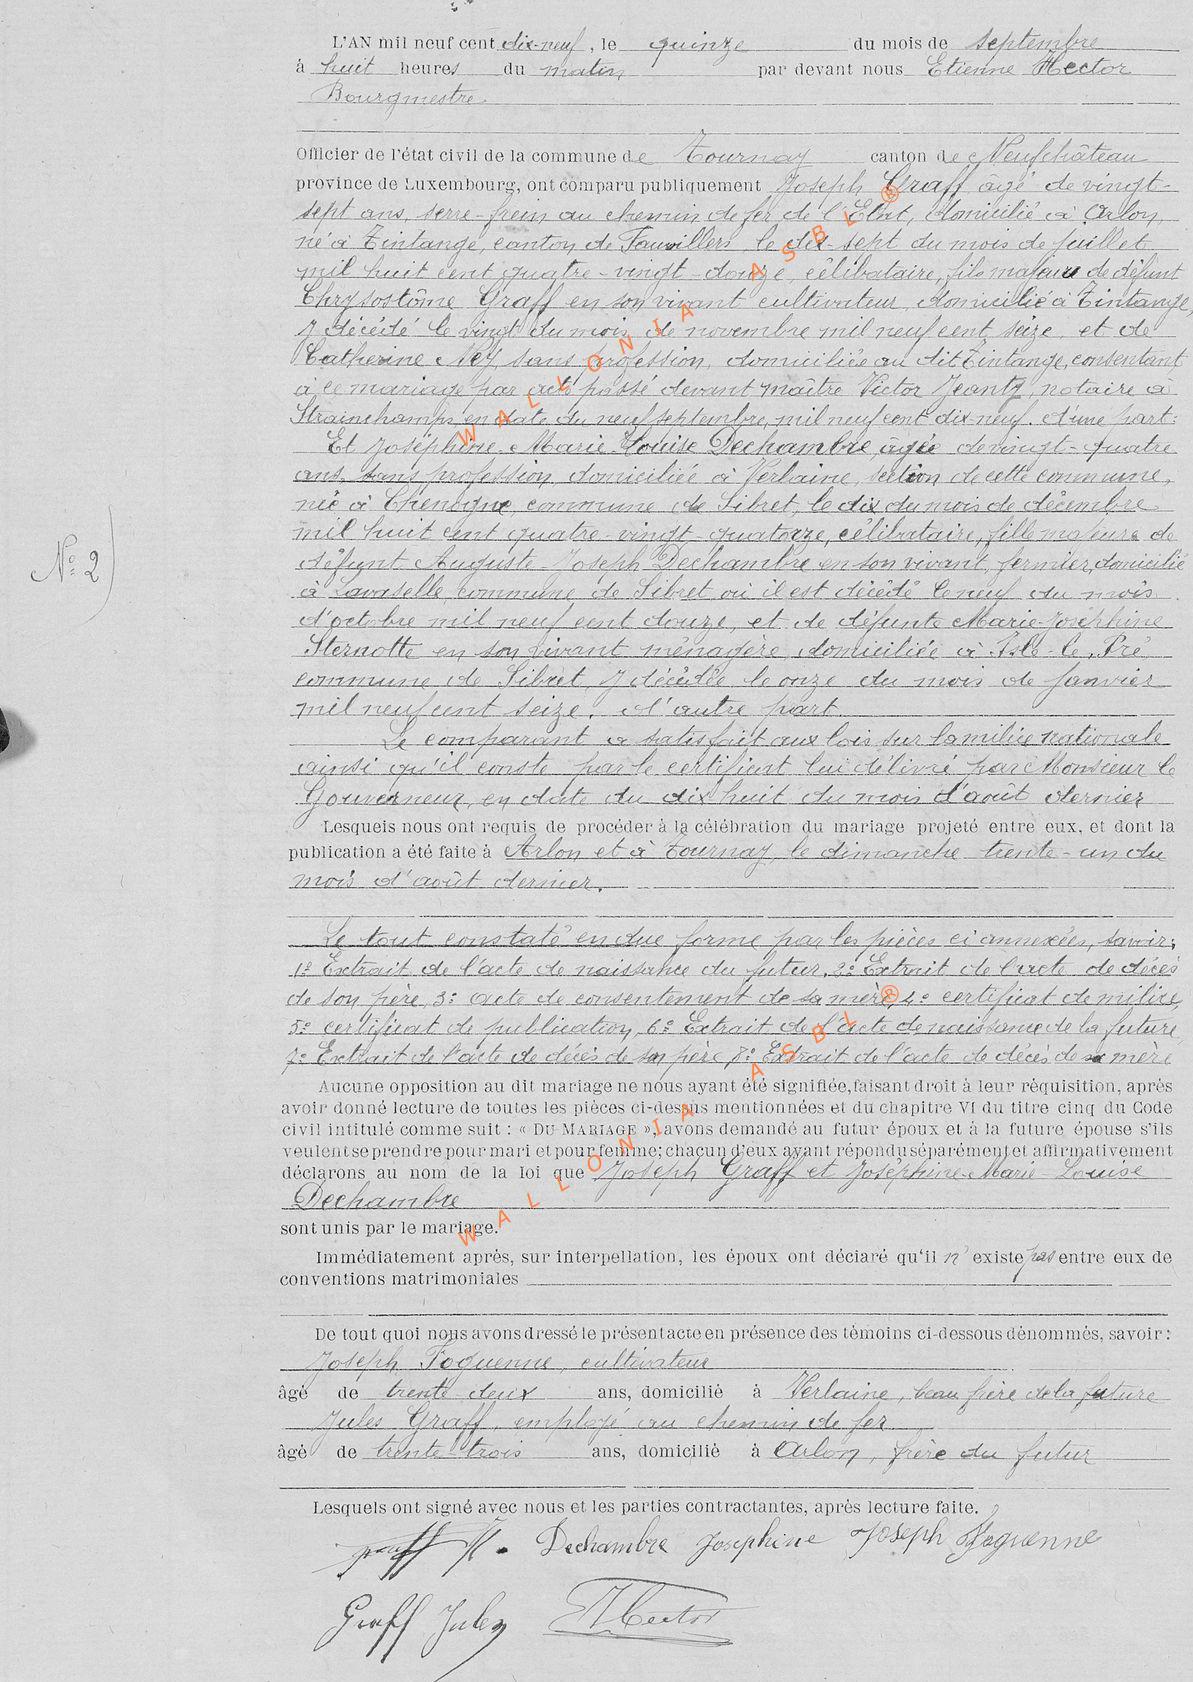 L'AN mil neuf cent dix-neuf, le quinze du mois de septembre
à huit heures du matin par devant nous Etienne Hector
Bourgmestre
Officier de l'état civil de la commune de Tournay canton de Neufchâteau
province de Luxembourg, ont comparu publiquement Joseph Graff âgé de vingt-
sept ans, serre-frein au chemin de fer de l'Etat, domicilié à Arlon,
né à Tintange, canton de Fauvillers, le dix-sept du mois de juillet
mil huit cent quatre-vingt-douze, célibataire, fils majeur de défunt
Chrysostôme Graff en son vivant cultivateur, domicilié à Tintange,
y décédé le vingt du mois de novembre mil neuf cent seize et de
Catherine Ney, sans profession, domiciliée au dit Tintange, consentant
à ce mariage par acte passé devant maître Victor Jeanty, notaire à
Strainchamps en date du neuf septembre, mil neuf cent dix-neuf. d'une part:
Et Joséphine-Marie-Louise Dechambre, âgée de vingt-quatre
ans, sans profession, domiciliée à Verlaine, section de cette commune,
née à Chenogne, commune de Sibret, le dix du mois de décembre
mil huit cent quatre-vingt-quatorze, célibataire, fille majeure de
défunt Auguste-Joseph Dechambre en son vivant, fermier, domicilié
à Lavaselle, commune de Sibret, où il est décédé le neuf du mois
d'octobre mil neuf cent douze, et de défunte Marie-Joséphine
Sternotte en son vivant ménagère, domiciliée à Isle-le-Pré,
commune de Sibret, y décédée le onze du mois de janvier
mil neuf cent seize. d'autre part
Le comparant a satisfait aux lois sur la milice nationale
ainsi qu'il conste par le certificat lui délivré par Monsieur le
Gouverneur, en date du dix huit du mois d'août dernier
Lesquels nous ont requis de procéder à la célébration du mariage projeté entre eux, et dont la
publication a été faite à Arlon et à Tournay, le dimanche trente-un du
mois d'août dernier.
Le tout constaté en due forme par les pièces ci annexées, savoir:
1º Extrait de l'acte de naissance du futur, 2º Extrait de l'acte de décès
de son père, 3º acte de consentement de sa mère, 4º certificat de milice,
5º certificat de publication, 6º Extrait de l'acte de naissance de la future,
7º Extrait de l'acte de décès de son père, 8º Extrait de l'acte de décès de sa mère
Aucune opposition au dit mariage ne nous ayant été signifiée, faisant droit à leur réquisition, après
avoir donné lecture de toutes les pièces ci-dessus mentionnées et du chapitre VI du titre cinq du Code
civil intitulé comme suit : « DU MARIAGE », avons demandé au futur époux et à la future épouse s'ils
veulent se prendre pour mari et pour femme; chacun d'eux ayant répondu séparément et affirmativement
déclarons au nom de la loi que Joseph Graff et Joséphine-Marie-Louise
Dechambre
sont unis par le mariage.
Immédiatement après, sur interpellation, les époux ont déclaré qu'il n'existe pas entre eux de
conventions matrimoniales
Nº 2
De tout quoi nous avons dressé le présent acte en présence des témoins ci-dessous dénommés, savoir :
Joseph Foguenne, cultivateur
âgé de trente deux ans, domicilié à Verlaine, beau frère de la future
Jules Graff, employé au chemin de fer
âgé de trente-trois ans, domicilié à Arlon, frère du futur
Lesquels ont signé avec nous et les parties contractantes, après lecture faite.
Graff J. Dechambre Josephine Joseph Foguenne
Graff Jules E Hector
WALLONIA ASBL ®
WALLONIA ASBL ®